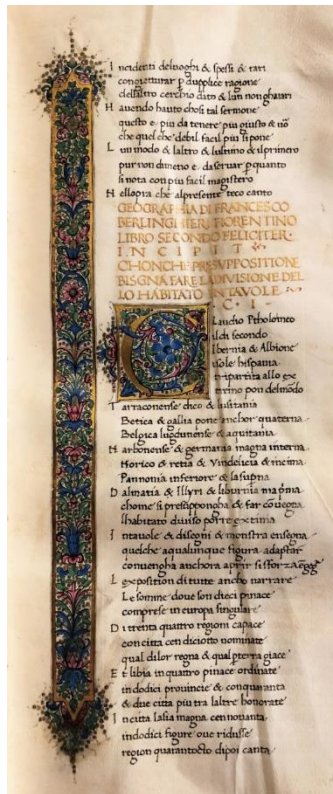 I ncidenti deluoghi & spessi & rari
congietturar p duplice ragione
dellaltro cerchio dato & lun non ghauari
H auendo hauto chosi tal sermone
questo e piu da tenere piu giusto & uõ
che quel che debil facil piu sipone
L un modo & laltro & lultimo & ilprimero
pur non dimeno e daseruar pquanto
si nota con piu facil magistero
N ellopra che alpresente teco canto
GEOGRAPHIA DI FRANCESCO
BERLINGHIERI FIORENTINO
LIBRO SECONDO FELICITER
INCIPIT
CHONCHE PRESVPPOSITIONE
BISGNA FARE LA DIVISIONE DEL
LO HABITATO INTAVOLE
C · I ·
C Laudio Ptholomeo
ilch secondo
Ibernia & Albione
isole hispania
tripartita allo ex
trino pon delmõdo
T arraconense dico & lusitania
Betica & gallia pone anchor quaterna
Belgica lugdunense & aquitania
N arbonense & germania magna interna
Norico & retia & Vindelicia & incima
Pannonia inferiore & lasupna
D almatia & Illyri & liburnia ma pma
chome si presuppongha & far couegna
lhabitato diuiso por te extima
I ntauole & disegni & monstra ensegna
quelche aqualunque figura adaptar
conuengha anchora aprir si sforza
L exposition di tutte ancho narrare
Le somme doue son dieci pinace
comprese in europa singulare
D i trenta quattro regioni capace
con citta cen diciotto nominate
qual di lor regna & qual pterra giace
E t libia in quattro pinace ordinate
indodici prouincie & conquaranta
& due citta piu tra laltre honorate
I ncitta lasia magna cennouanta
indodici figure oue ridusse
region quarantocto dipoi canta